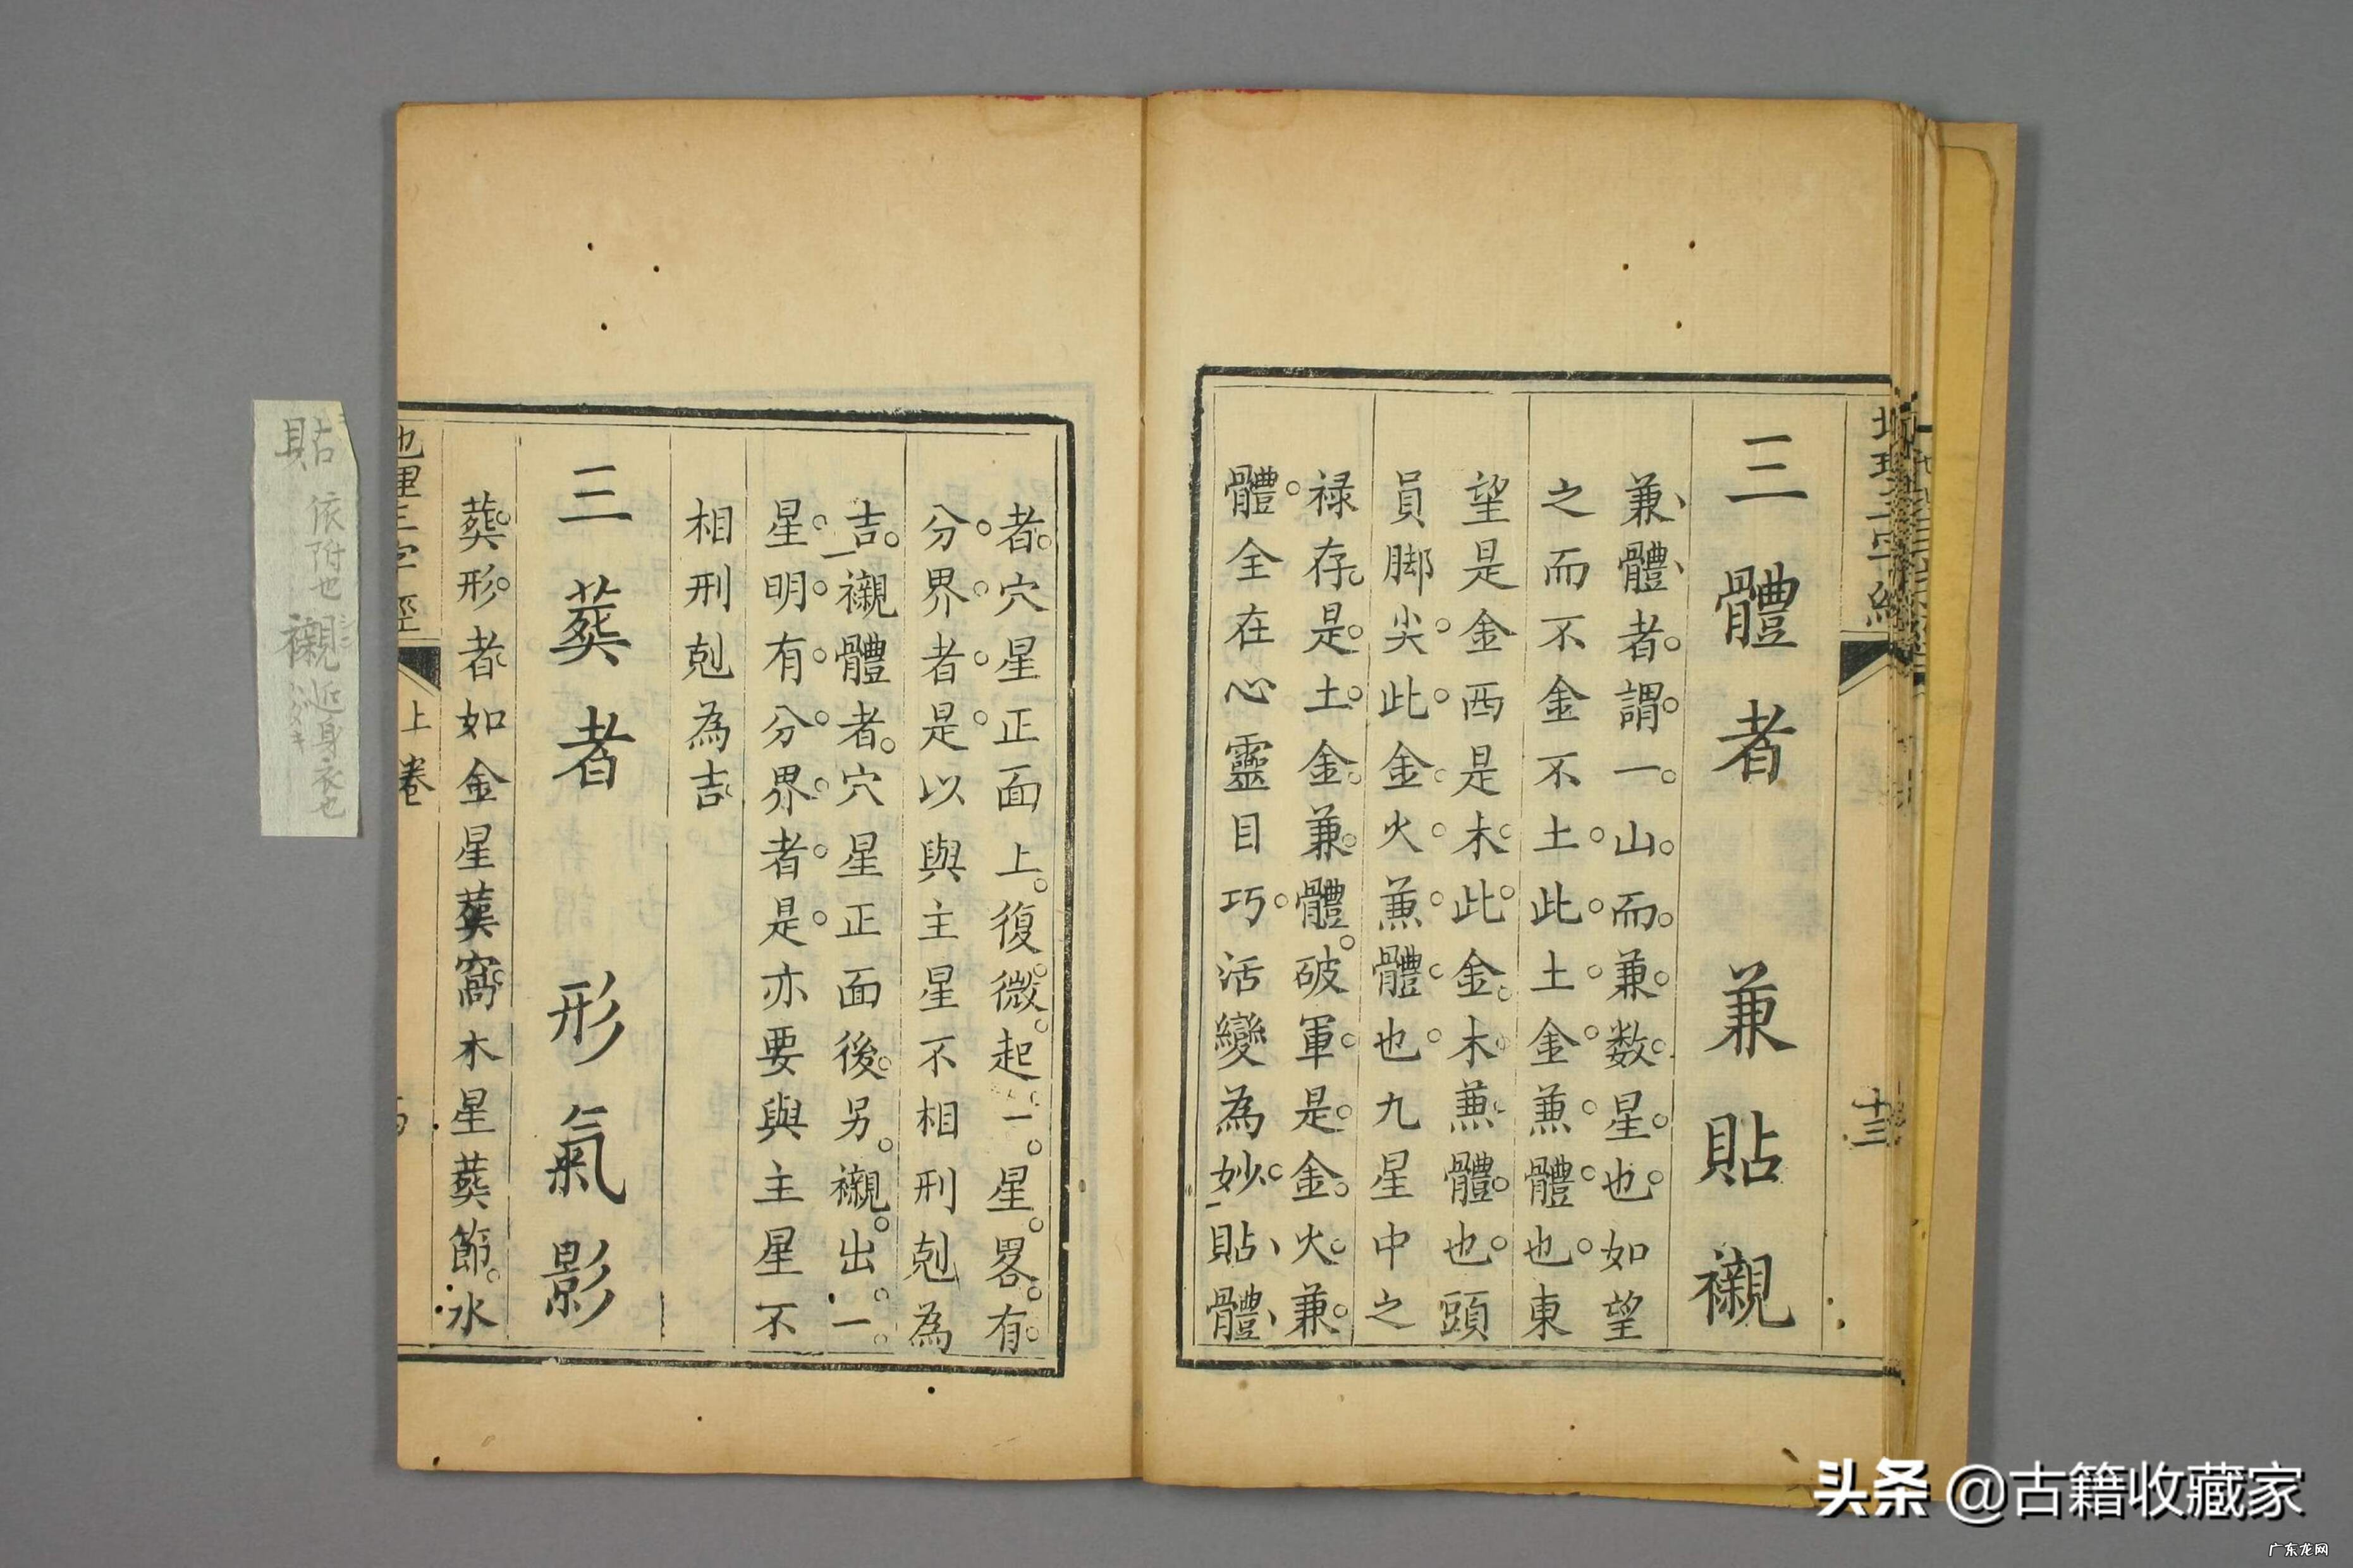 三體者　兼貼襯
兼體者謂一山而兼数星也如望
之而不金不土此土金兼體也東
望是金西是木此金木兼體也頭
員脚尖此金火兼體也九星中之
禄存是土金兼體破軍是金火兼
體全在心靈目巧活變為妙貼體
者穴星正面上復微起一星畧有
分界者是以與主星不相刑剋為
吉襯體者穴星正面後另襯出一
星明有分界者是亦要與主星不
相刑剋為吉
三葬者　形氣影
葬形者如金星葬窩木星葬節水
地理三字經　上卷
十三
貼 依附也 襯 近身衣也
头条 @古籍收藏家
广东龙网